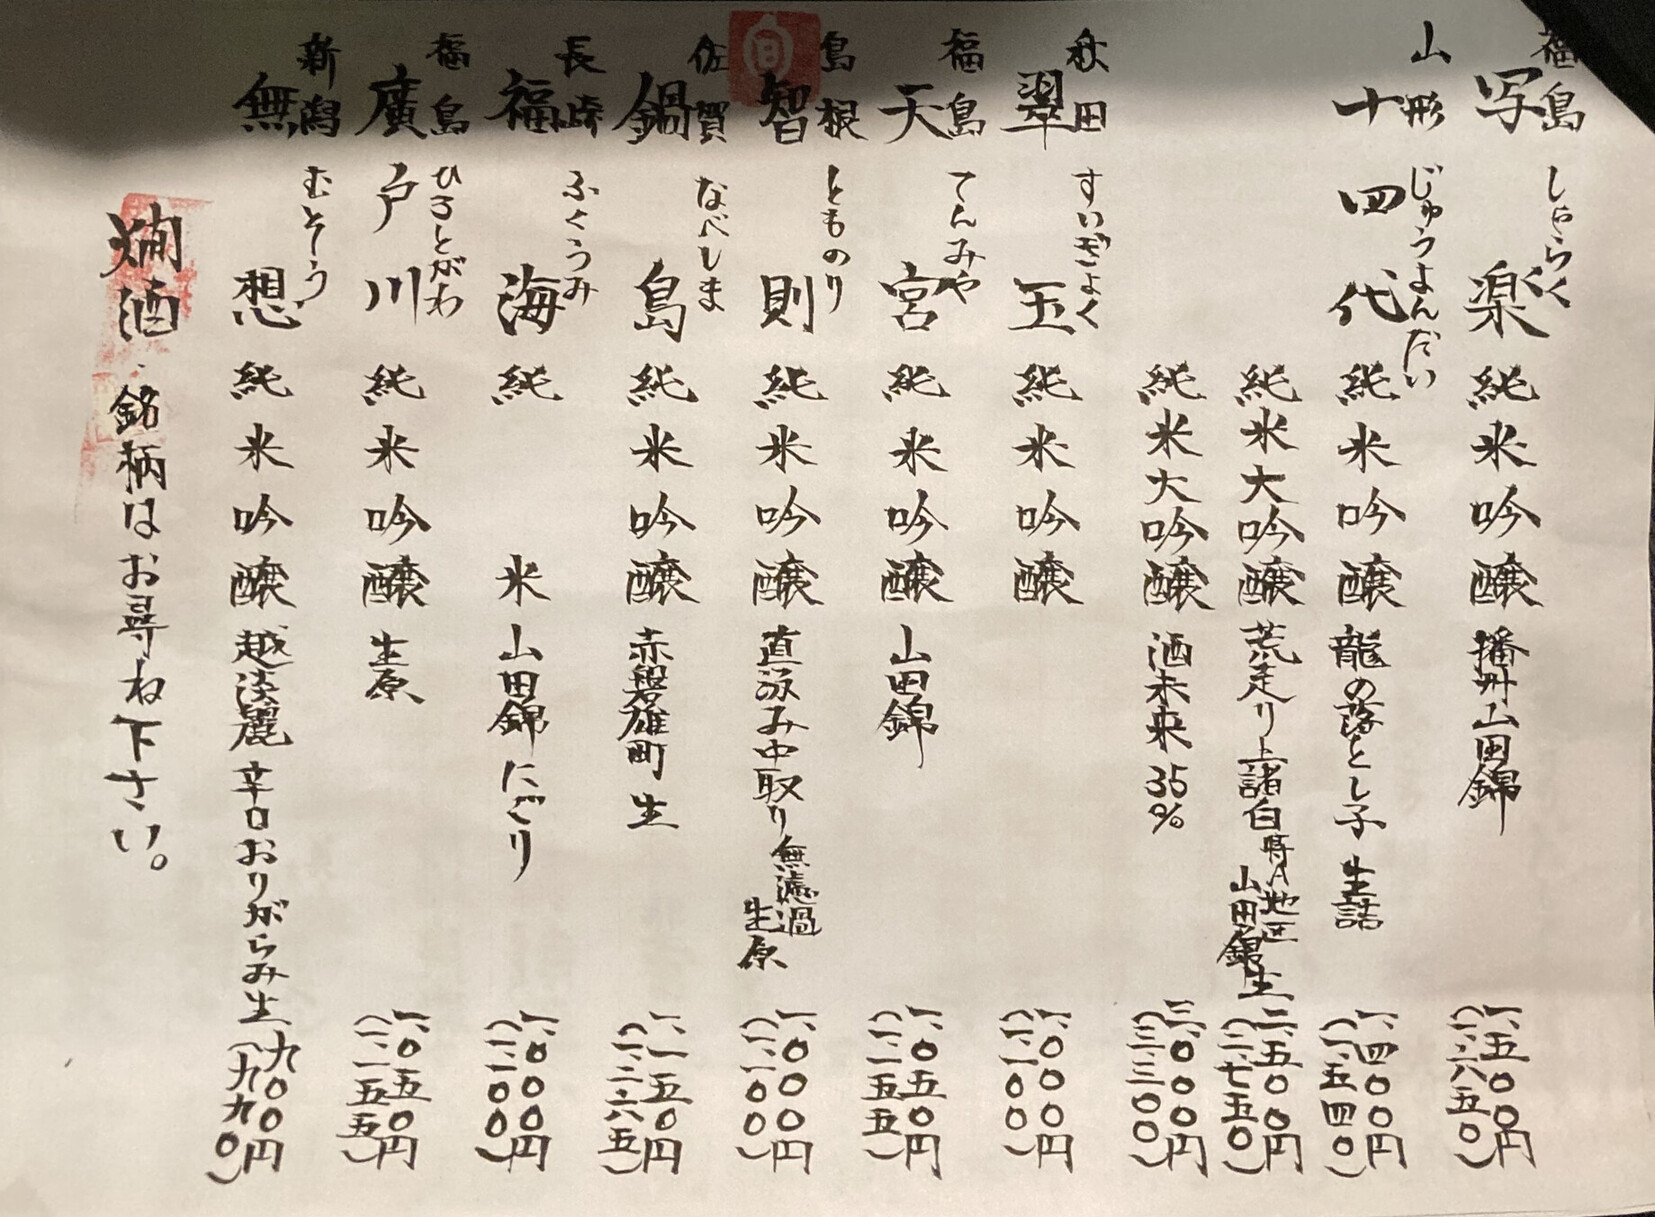 福島 しゃらく
写楽 純米吟醸 播州山田錦 一、五〇〇円
(一、六五〇)
山形 じゅうよんだい
十四代 純米吟醸 龍の落とし子 生詰 一、四〇〇円
(一、五四〇)
純米大吟醸 荒走り上諸白 特A地区 山田錦 生 二、五〇〇円
(二、七五〇)
純米大吟醸 酒未来 35% 三、〇〇〇円
(三、三〇〇)
秋田 すいぎょく
翠玉 純米吟醸 一、〇〇〇円
(一、一〇〇)
福島 てんみや
天宮 純米吟醸 山田錦 一、〇五〇円
(一、一五五)
島根 とものり
旬
智則 純米吟醸 直汲み中取り 無濾過 生原 一、〇〇〇円
(一、一〇〇)
佐賀 なべしま
鍋島 純米吟醸 赤磐雄町 生 一、一五〇円
(一、二六五)
長崎 ふくうみ
福海 純米 山田錦 にごり 一、〇〇〇円
(一、一〇〇)
福島 ひろとがわ
廣戸川 純米吟醸 生原 一、〇五〇円
(一、一五五)
新潟 むそう
無想 純米吟醸 越淡麗 辛口おりがらみ生 九〇〇円
(九九〇)
燗酒・銘柄はお尋ね下さい。